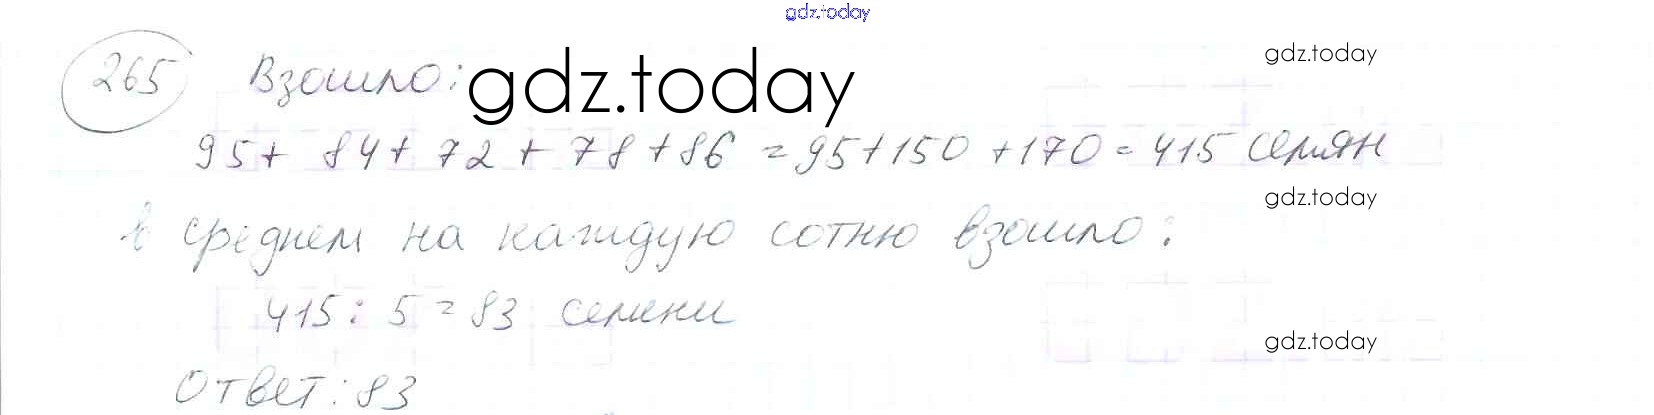 gdz.today
265 Взошло: gdz.today
gdz.today
95 + 84 + 72 + 78 + 86 = 95 + 150 + 170 = 415 семян
gdz.today
в среднем на каждую сотню взошло:
415 : 5 = 83 семени
gdz.today
Ответ: 83